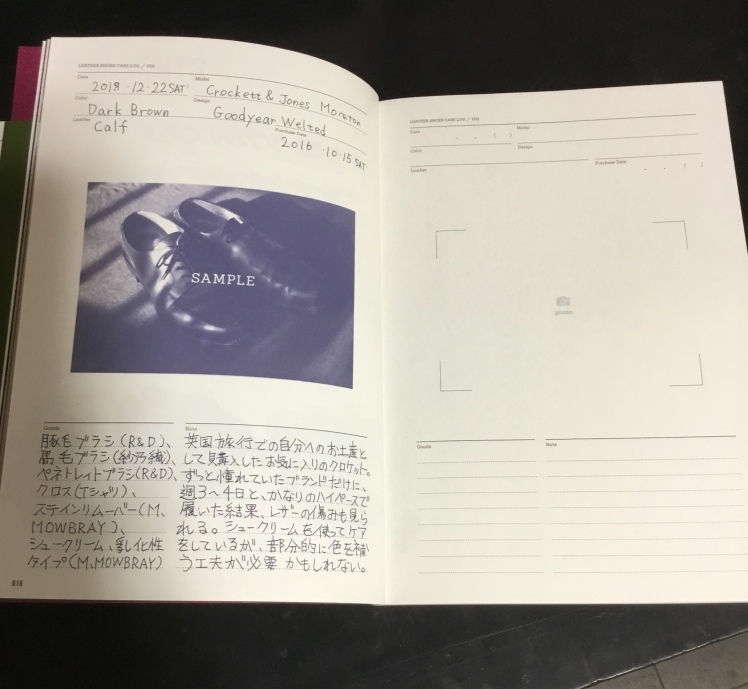 LEATHER SHOES CARE LOG / 001
Date 2018 ・12・22 SAT Model Crockett & Jones Moreton
Color Dark Brown Design Goodyear Welted
Leather Calf Purchase Date 2016 ・10・15 SAT
SAMPLE
Goods
豚毛ブラシ(R&D)、
馬毛ブラシ(紗乃織)、
ペネトレイトブラシ(R&D)、
クロス(Tシャツ)、
ステインリムーバー(M.
MOWBRAY)、
シュークリーム、乳化性
タイプ(M.MOWBRAY)
Note
英国旅行での自分へのお土産と
して購入したお気に入りのクロケット。
ずっと憧れていたブランドだけに、
週3〜4日と、かなりのハイペースで
履いた結果、レザーの傷みも見ら
れる。シュークリームを使ってケア
をしているが、部分的に色を補
う工夫が必要かもしれない。
016
LEATHER SHOES CARE LOG /
Date ・ ・ ( ) Model
Color Design
Leather Purchase Date ・ ・ ( )
photo
Goods Note